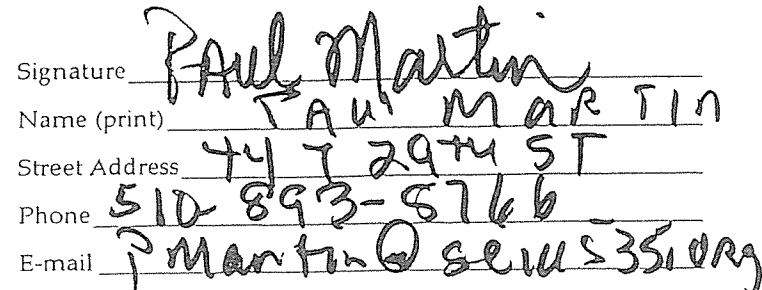 Signature Paul Martin
Name (print) PAUL MARTIN
Street Address 447 29TH ST
Phone 510-893-8766
E-mail PMartin@seiu535.org